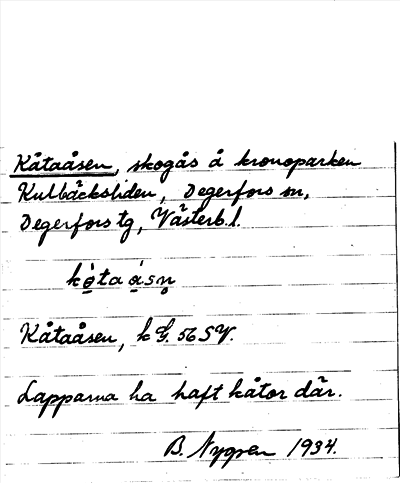 Kåtaåsen, skogås å kronoparken
Kulbäcksliden, Degerfors sn,
Degerfors tg, Västerb. l.
kò̱ta á̱sn̥
Kåtaåsen, k G. 56 SV.
Lapparna ha haft kåtor där.
B. Nygren 1934.